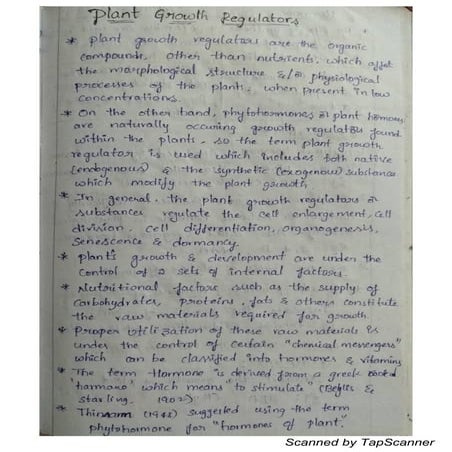 Plant Growth Regulators
* Plant growth regulators are the organic
compounds, other than nutrients, which affet
the morphological structure & /or physiological
processes of the plants, when present in low
concentrations.
* On the other hand, phytohormones or plant hormones
are naturally occuring growth regulators found
within the plants, so the term plant growth
regulator is used which includes both native
(endogenous) & the synthetic (exogenous) substances
which modify the plant growth
* In general, the plant growth regulators or
substances regulate the cell enlargement, cell
division, cell differentiation, organogenesis,
Senescence & dormancy.
* plants growth & development are under the
control of 2 sets of internal factors.
* Nutritional factors such as the supply of
carbohydrates, proteins, fats & others constitute
the raw materials required for growth
* Proper utilization of these raw materials is
under the control of certain "chemical messengers"
which can be classified into hormones & vitamins
* The term Hormone is derived from a greek
'harmaro' which means "to stimulate" (
starling. 1902)
* (1948) suggested using the term
phytohormone for "hormones of plant".
Scanned by TapScanner